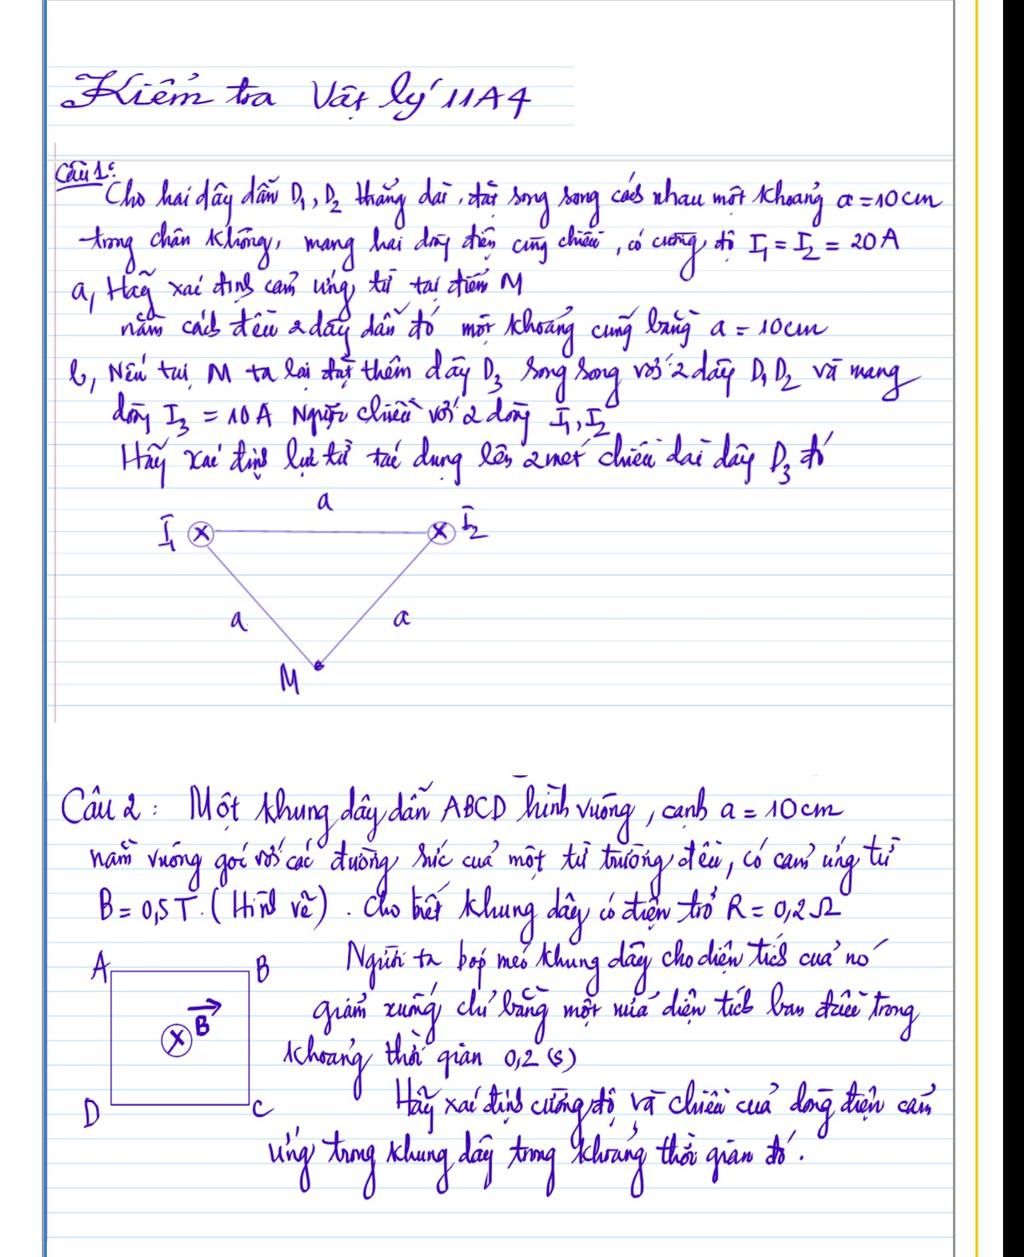 Kiểm tra Vật lý 11A4
Câu 1:
Cho hai dây dẫn D1, D2 thẳng dài, đặt song song cách nhau một khoảng a = 10cm
trong chân không, mang hai dòng điện cùng chiều, có cường độ I1 = I2 = 20A
a, Hãy xác định cảm ứng từ tại điểm M
nằm cách đều 2 dây dẫn đó một khoảng cũng bằng a = 10cm
b, Nếu tại M ta lại đặt thêm dây D3 song song với 2 dây D1 D2 và mang
dòng I3 = 10A Ngược chiều với 2 dòng I1, I2
Hãy xác định lực từ tác dụng lên 2 mét chiều dài dây D3 đó
a
I1 X X I2
a a
M
Câu 2: Một khung dây dẫn ABCD hình vuông, cạnh a = 10cm
nằm vuông góc với các đường sức của một từ trường đều, có cảm ứng từ
B = 0,5T. (Hình vẽ). Cho biết khung dây có điện trở R = 0,2Ω
A B Người ta bóp méo khung dây cho diện tích của nó
giảm xuống chỉ bằng một nửa diện tích ban đầu trong
X B khoảng thời gian 0,2 (s)
D C Hãy xác định cường độ và chiều của dòng điện cảm
ứng trong khung dây trong khoảng thời gian đó.